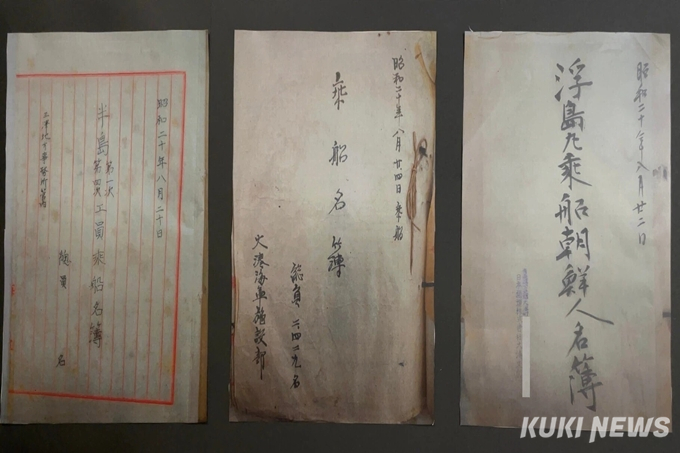 昭和二十年八月二十日
半島
第一次
第四次
工員乘船名簿
総員 名
昭和二十年八月廿四日乘船
乘船名簿
大湊海軍施設部
昭和二十年八月廿二日
浮島丸乘船朝鮮人名簿
KUKI NEWS